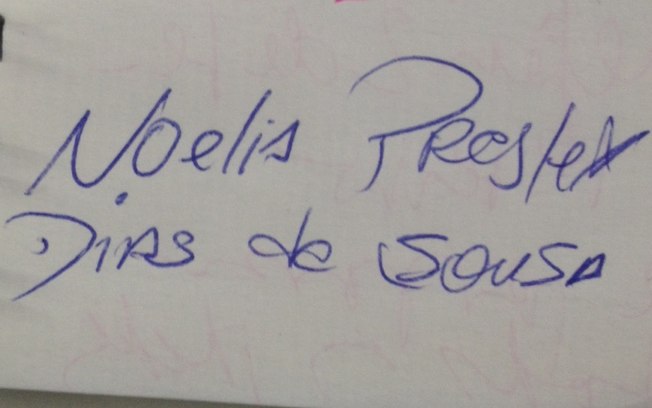 Noelis Presley
Dias de Sousa